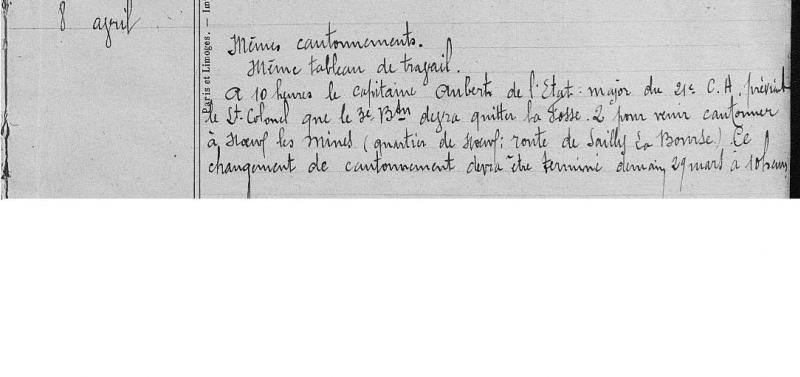 8 avril
Paris et Limoges. — Im
Mêmes cantonnements.
Même tableau de travail.
A 10 heures le capitaine Aubert de l'Etat-major du 21e C.A. prévient
le Lt-Colonel que le 3e Btn devra quitter la Fosse 2 pour venir cantonner
à Noeux les Mines (quartier de Noeux; route de Sailly La Bourse) Ce
changement de cantonnement devra être terminé demain 29 mars à 10 heures